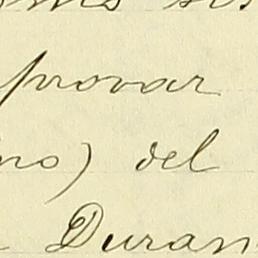 provar
no) del
Duran